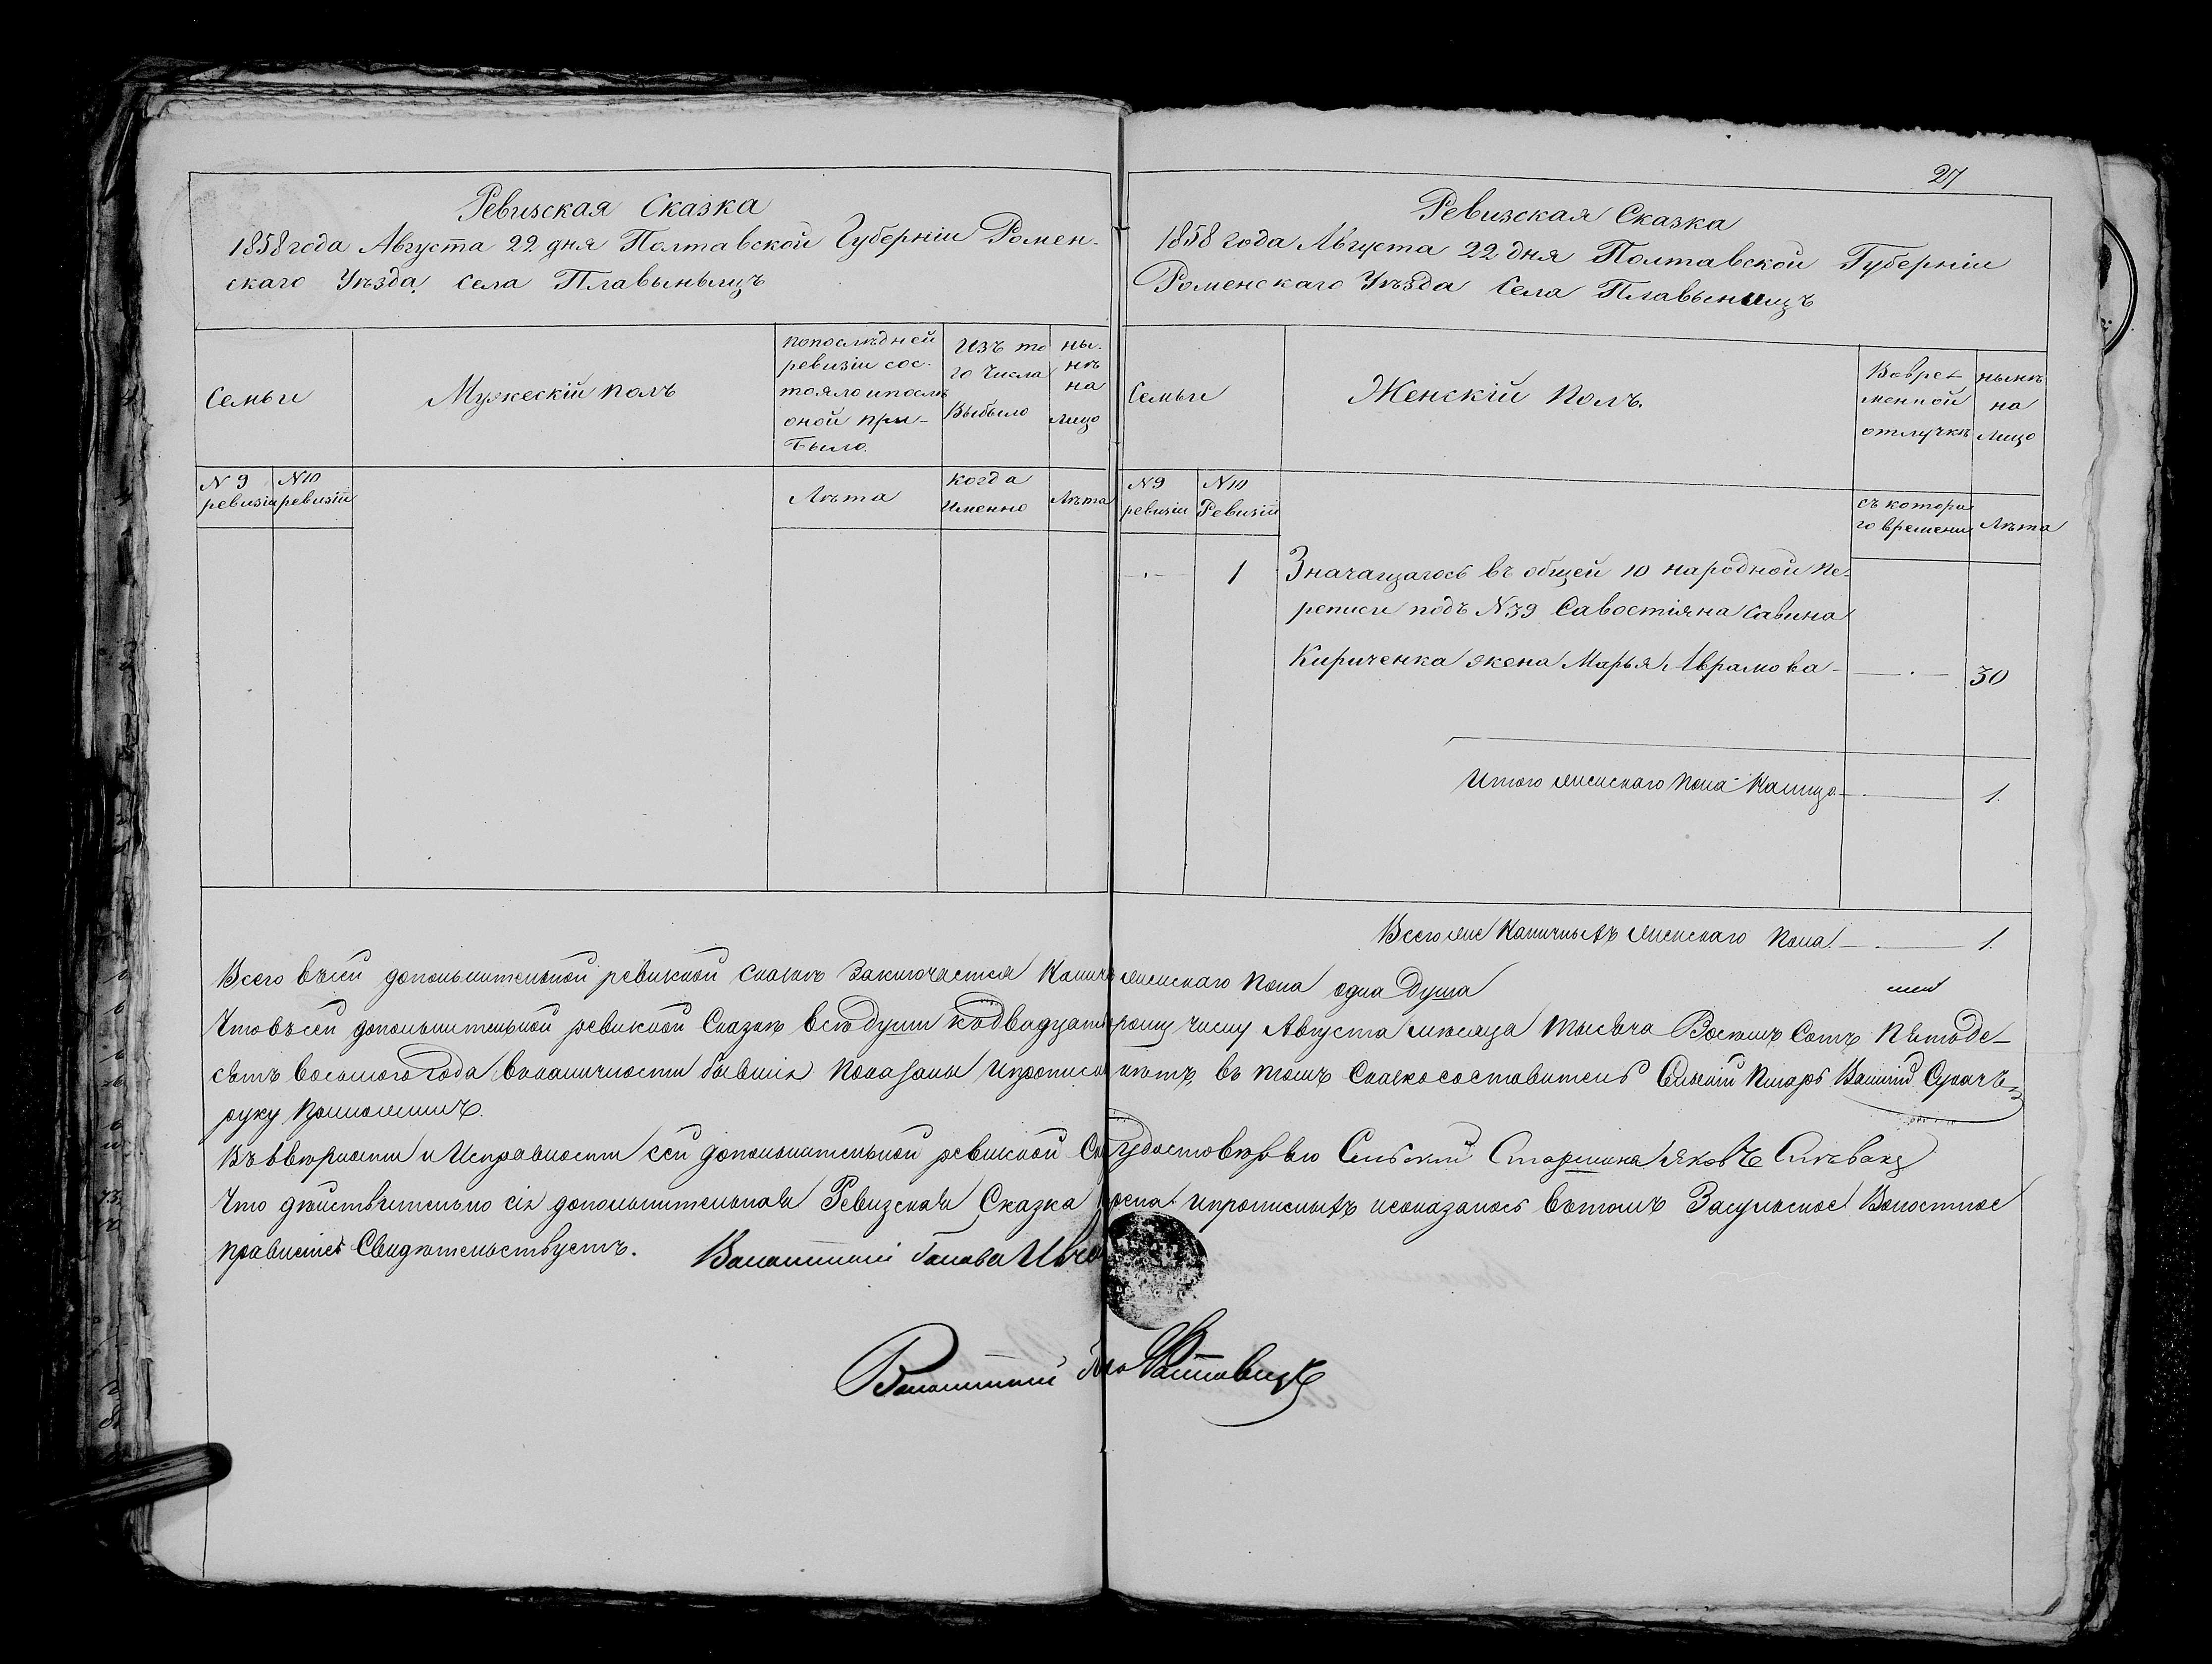 27
Ревизская Сказка
1858 года Августа 22 дня Полтавской Губерніи Ромен-
скаго Уѣзда села Плавыныщъ
Семьи
Мужескій полъ
попослѣдней
ревизіи сос-
тояло ипослѣ
оной при-
было.
Изъ то
го числа
Выбыло
ны-
нѣ
на
лицо
N 9
ревизіи
N 10
ревизіи
Лѣта
когда
Именно
Лѣта
Ревизская Сказка
1858 года Августа 22 дня Полтавской Губерніи
Роменскаго Уѣзда Села Плавынищъ
Семьи
Женскій Полъ.
Вовре-
менной
отлучкѣ
нынѣ
на
Лицо
N 9
ревизіи
N 10
Ревизіи
съ которо
го времени
Лѣта
1 Значащагось въ общей 10 народной пе-
реписи подъ N 39 Савостіяна Савина
Кириченка жена Марья Аврамова - 30
Итого женскаго пола Налицо - 1.
Всего же Наличныхъ женскаго пола - 1.
Всего въсей дополнительной ревизкой сказкѣ Заключается Налич женскаго пола одна Душа
Чтовъсей дополнительной ревизкой Сказкѣ всѣ души кодвадцать рому числу Августа мѣсяца тысяча Восемь Сотъ Пятьде-
сятъ восьмого года вналичности бывшія показаны Ипрописн нѣтъ, въ томъ Сказкосоставитель Сельскій Писарь
руку приложилъ.
Въ вѣрности и Исправности сей дополнительной ревизкой Ск удостовѣряю Сельскій Старшина Яковъ
Что дѣйствительно сія дополнительная Ревизская Сказка Ипрописныхъ неоказалось вътомъ Засульское Волостное
правленіе Свидѣтельствуетъ. Волостный Голова
Волостный